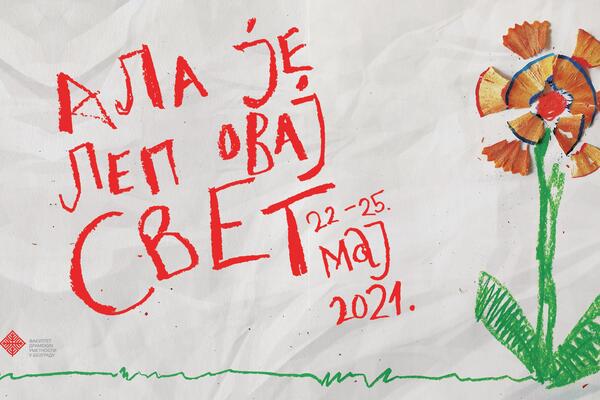 АЛА ЈЕ
ЛЕП ОВАЈ
СВЕТ
22-25.
МАЈ
2021.
ФАКУЛТЕТ
ДРАМСКИХ
УМЕТНОСТИ
У БЕОГРАДУ